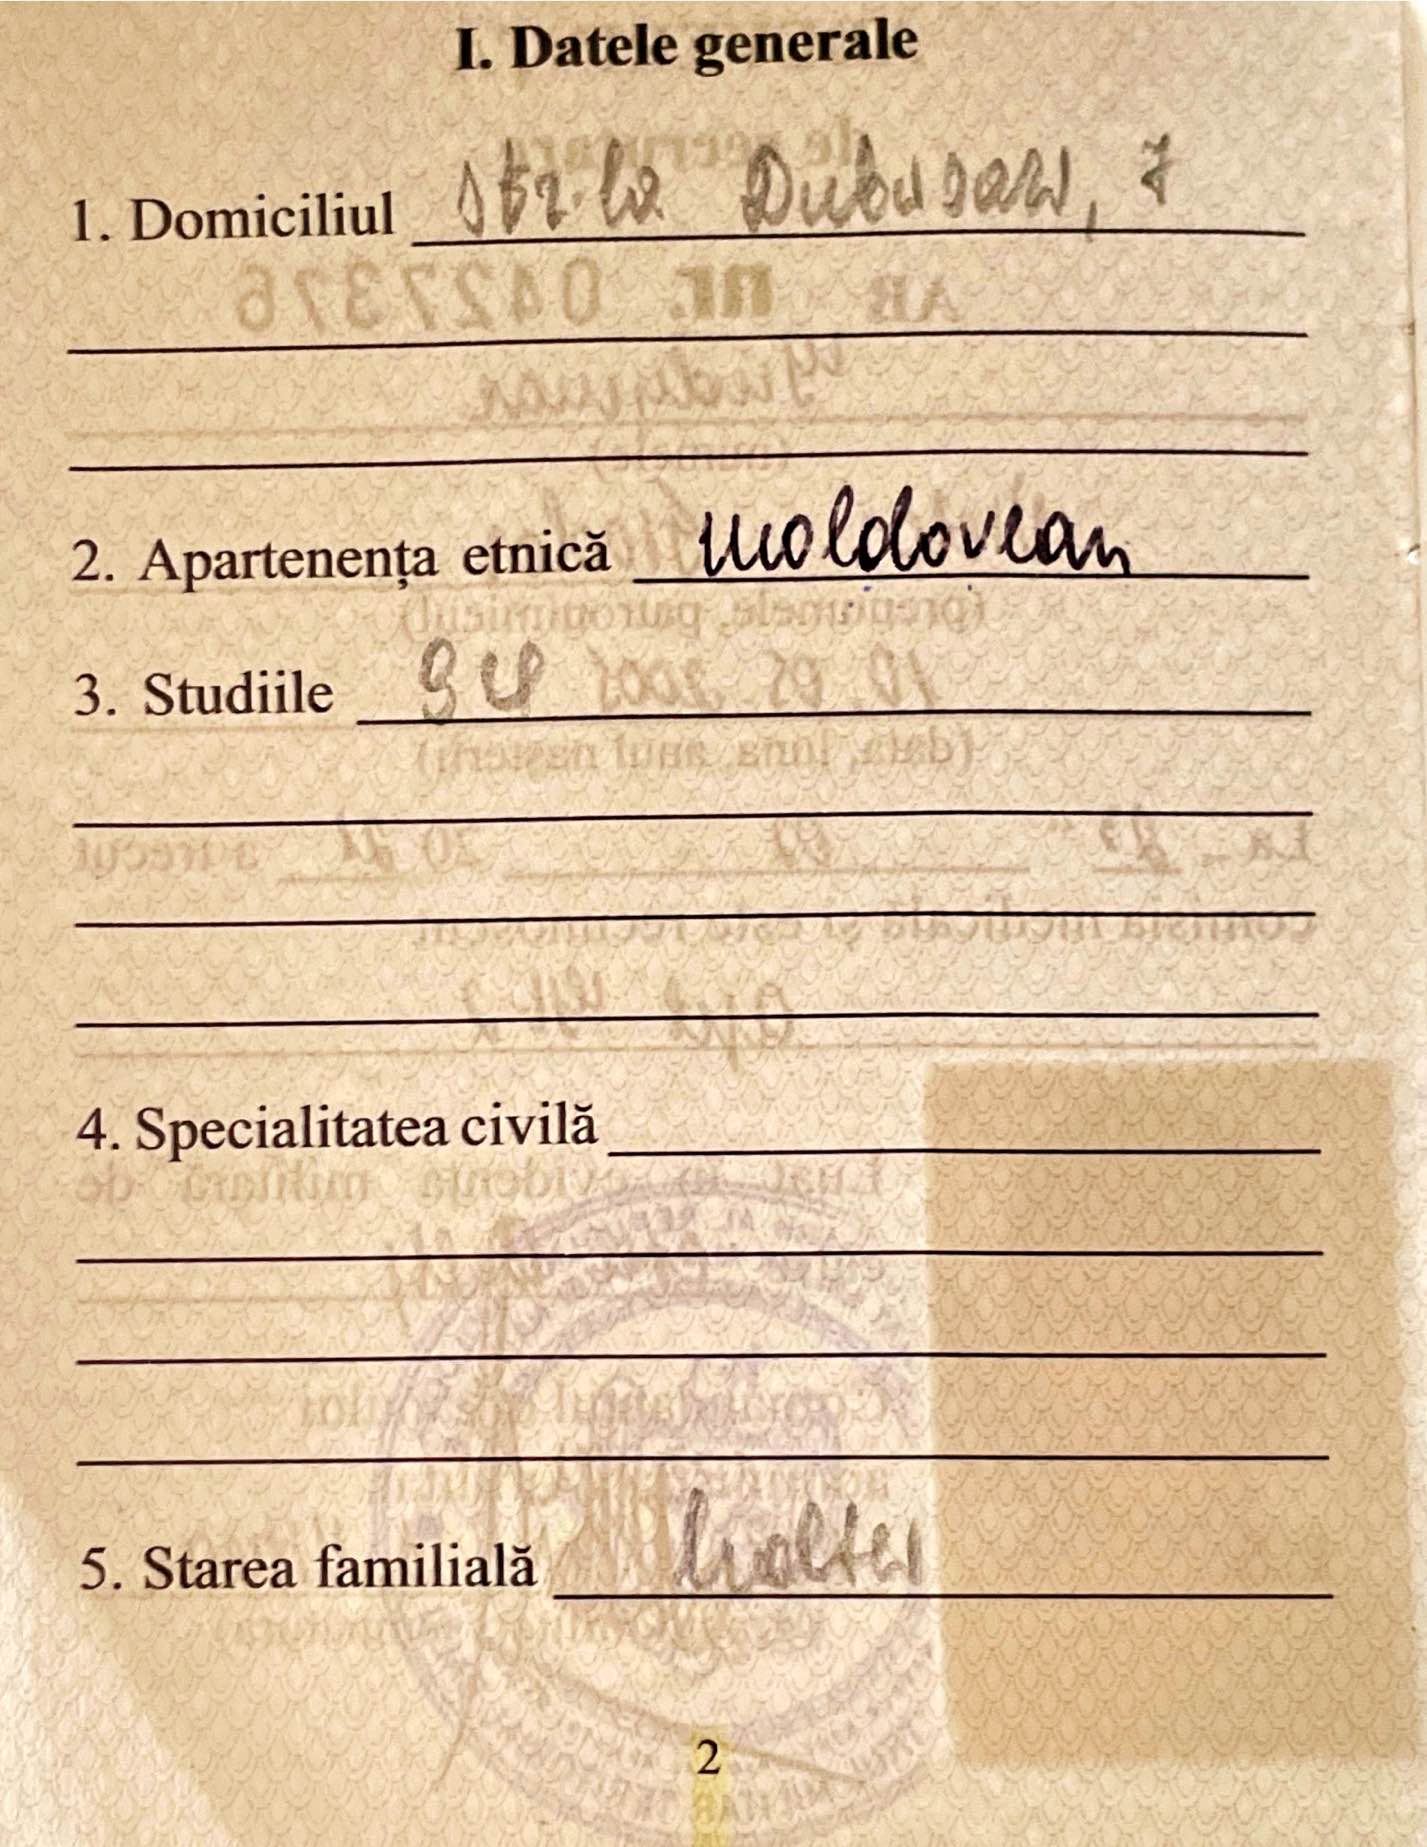 I. Datele generale
1. Domiciliul str-la Dubăsari, 7
2. Apartenența etnică moldovean
3. Studiile 9 cl
4. Specialitatea civilă
5. Starea familială
2